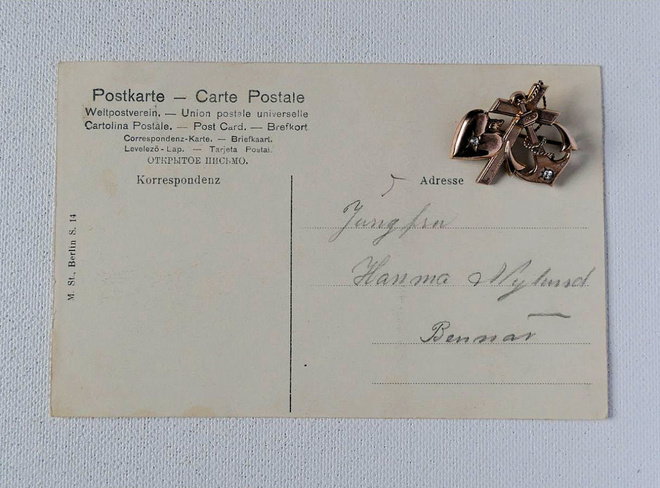 Postkarte — Carte Postale
Weltpostverein. — Union postale universelle
Cartolina Postale. — Post Card. — Brefkort
Correspondenz-Karte. — Briefkaart.
Levelező-Lap. — Tarjeta Postal.
ОТКРЫТОЕ ПИСЬМО.
Korrespondenz
Adresse
M. St., Berlin S. 14
Jungfru
Hanna Nylund
Bennäs